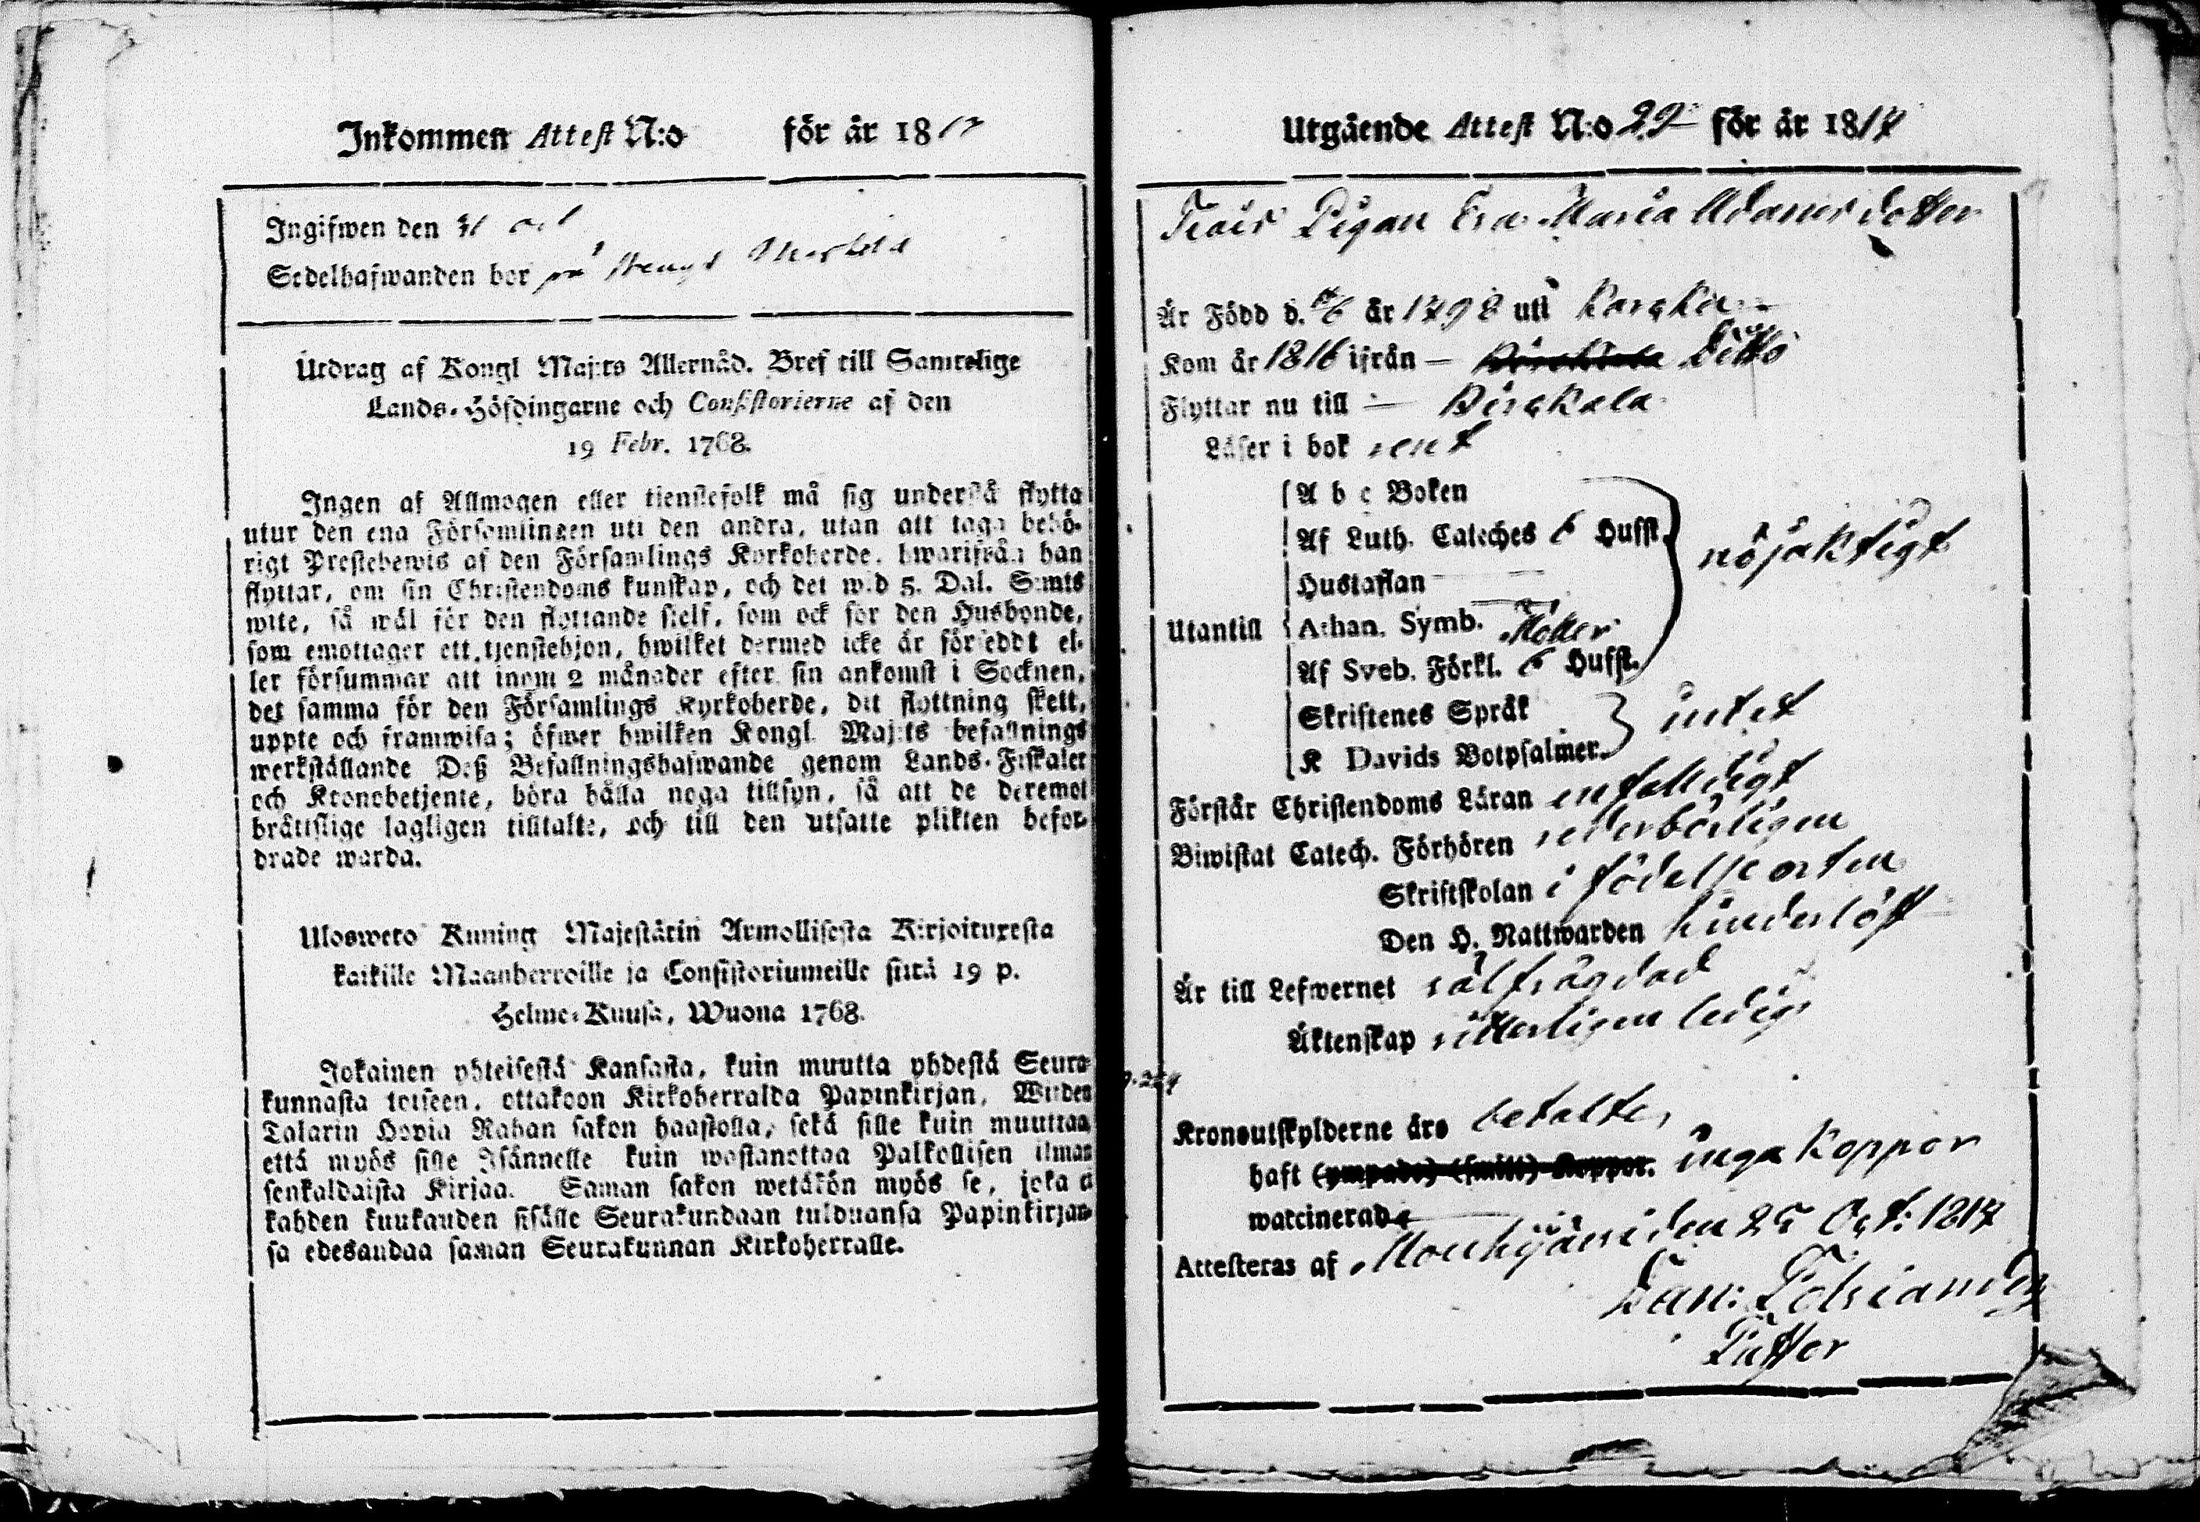 Inkommen Attest N:o för år 1817
Ingifwen den 31 oct
Sedelhafwanden bor på
Utdrag af Kongl Maj:ts Allernåd. Bref till Samtelige
Lands-Höfdingarne och Consistorierne af den
19 Febr. 1768.
Ingen af Allmogen eller tienstefolk må sig understå flytta
utur den ena Församlingen uti den andra, utan att taga behö-
rigt Prestebewis af den Församlings Kyrkoherde, hwarifrån han
flyttar, om sin Christendoms kunskap, och det wid 5. Dal. S:mts
wite, så wäl för den flyttande sielf, som ock för den Husbonde,
som emottager ett tjenstehjon, hwilket dermed icke är förseddt el-
ler försummar att inom 2 månader efter sin ankomst i Socknen,
det samma för den Församlings Kyrkoherde, dit flyttning skett,
uppte och framwisa; öfwer hwilken Kongl. Maj:ts befallnings
werkställande Deß Befallningshafwande genom Lands-Fiskaler
och Kronobetjente, böra hålla noga tillsyn, så att de deremot
bråttslige lagligen tilltalte, och till den utsatte plikten befor-
drade warda.
Ulosweto Kuning Majestätin Armollisesta Kirjoituxesta
kaikille Maanherroille ja Consistoriumeille siitä 19 p.
Helme-Kuusa, Wuona 1768.
Jokainen yhteisestä Kansasta, kuin muutta yhdestä Seura-
kunnasta toiseen, ottakoon Kirkoherralda Papinkirjan, Wiiden
Talarin Hopia Rahan sakon haastolla, sekä sille kuin muuttaa,
että myös sille Isännelle kuin wastanottaa Palkollisen ilman
senkaldaista Kirjaa. Saman sakon wetäkön myös se, joka ei
kahden kuukauden sisälle Seurakundaan tulduansa Papinkirjan-
sa edesandaa saman Seurakunnan Kirkoherralle.
Utgående Attest N:o 22 för år 1817
Pigan Eva Maria Adamsdotter
Är Född d. 6 år 1798 uti Karckü
Kom år 1816 ifrån — Ditto
Flyttar nu till — Birckala
Läser i bok rent
A b c Boken
Af Luth. Cateches 6 Hufst.
Hustaflan
nöjaktigt
Utantill Athan. Symb.
Af Sveb. Förkl. 6 Hufst.
Skriftenes Språk
intet
K Davids Botpsalmer.
Förstår Christendoms Läran enfalldigt
Biwistat Catech. Förhören wederbörligen
Skriftskolan i födelse orten
Den H. Nattwarden hinderlöst
Är till Lefwernet wälfrägdad
Äktenskap witterligen ledig
Kronoutskylderne äro betalte,
haft (ympade) (smitt) Koppor. inga Koppor
waccinerad
Attesteras af Mouhijärwi den 25 Oct: 1817
Pastor